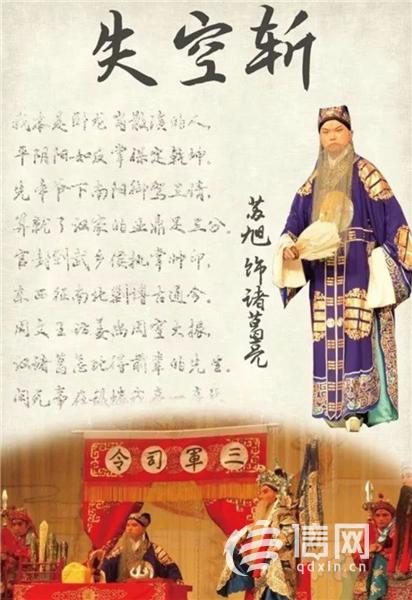 失空斩
我本是卧龙岗散淡的人,
平阴阳如反掌保定乾坤。
先帝爷下南阳御驾三请,
算就了汉家的业鼎足三分。
官封到武乡侯执掌帅印,
东西征南北剿博古通今。
周文王访姜尚周室大振,
汉诸葛怎比得前辈的先生。
闲无事在敌楼我亮一
苏旭 饰诸葛亮
三軍司令
信网
qdxin.cn